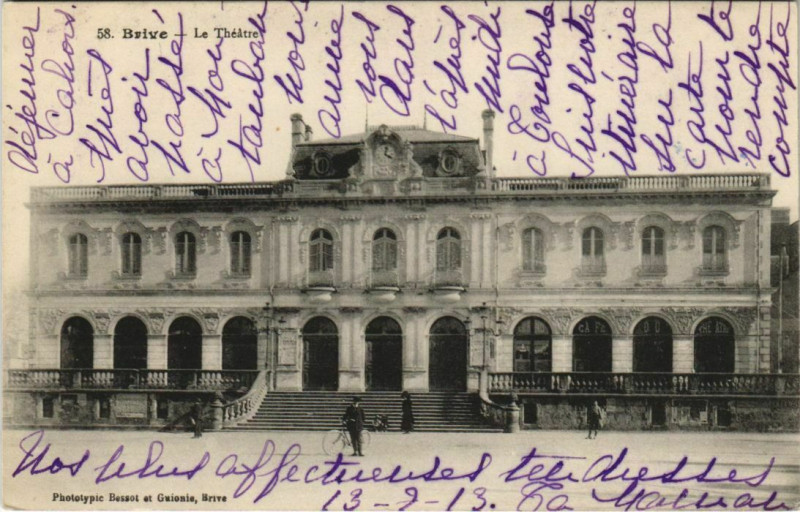 58. Brive — Le Théâtre
déjeuner
à Cahors
après
avoir
passé
à Mon
tauban
nous
irons
dans
l'après
midi
à Toulouse
suis
itinéraire
sur la
carte
pour te
rendre
compte
CAFÉ DU THÉÂTRE
Nos plus affectueuses tendresses
13-9-13. Ta Maman
Phototypie Bessot et Guionie, Brive